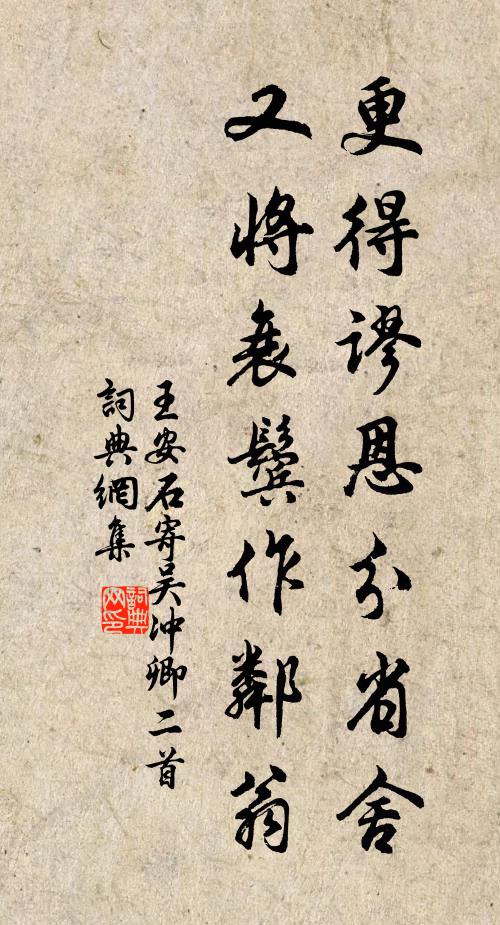 更得謬恩分省舍
又將衰鬢作鄰翁
王安石寄吴冲卿二首
詞典網集
詞典网印